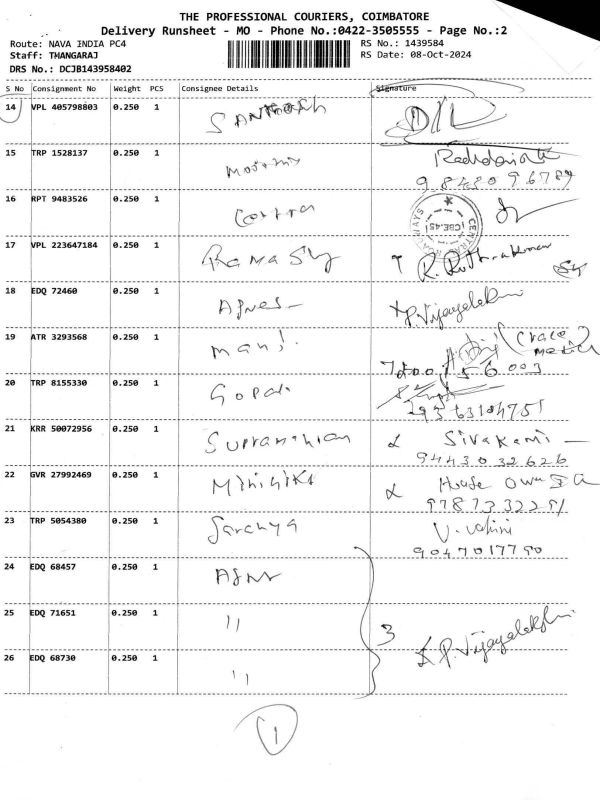 THE PROFESSIONAL COURIERS, COIMBATORE
Delivery Runsheet - MO - Phone No.:0422-3505555 - Page No.:2
Route: NAVA INDIA PC4 RS No.: 1439584
Staff: THANGARAJ RS Date: 08-Oct-2024
DRS No.: DCJB143958402
S No Consignment No Weight PCS Consignee Details Signature
14 VPL 405798803 0.250 1 Santhosh
15 TRP 1528137 0.250 1
98430 96789
16 RPT 9483526 0.250 1
CENTRAL CBE-45
17 VPL 223647184 0.250 1
18 EDQ 72460 0.250 1 Agnes P. Vijayalakshmi
19 ATR 3293568 0.250 1 Mani
20 TRP 8155330 0.250 1 Gopal
21 KRR 50072956 0.250 1 Sivakami
94430 32626
22 GVR 27992469 0.250 1 House Owner
23 TRP 5054380 0.250 1 Saranya
9047017790
24 EDQ 68457 0.250 1
25 EDQ 71651 0.250 1 " 3
26 EDQ 68730 0.250 1 " P. Vijayalakshmi
1